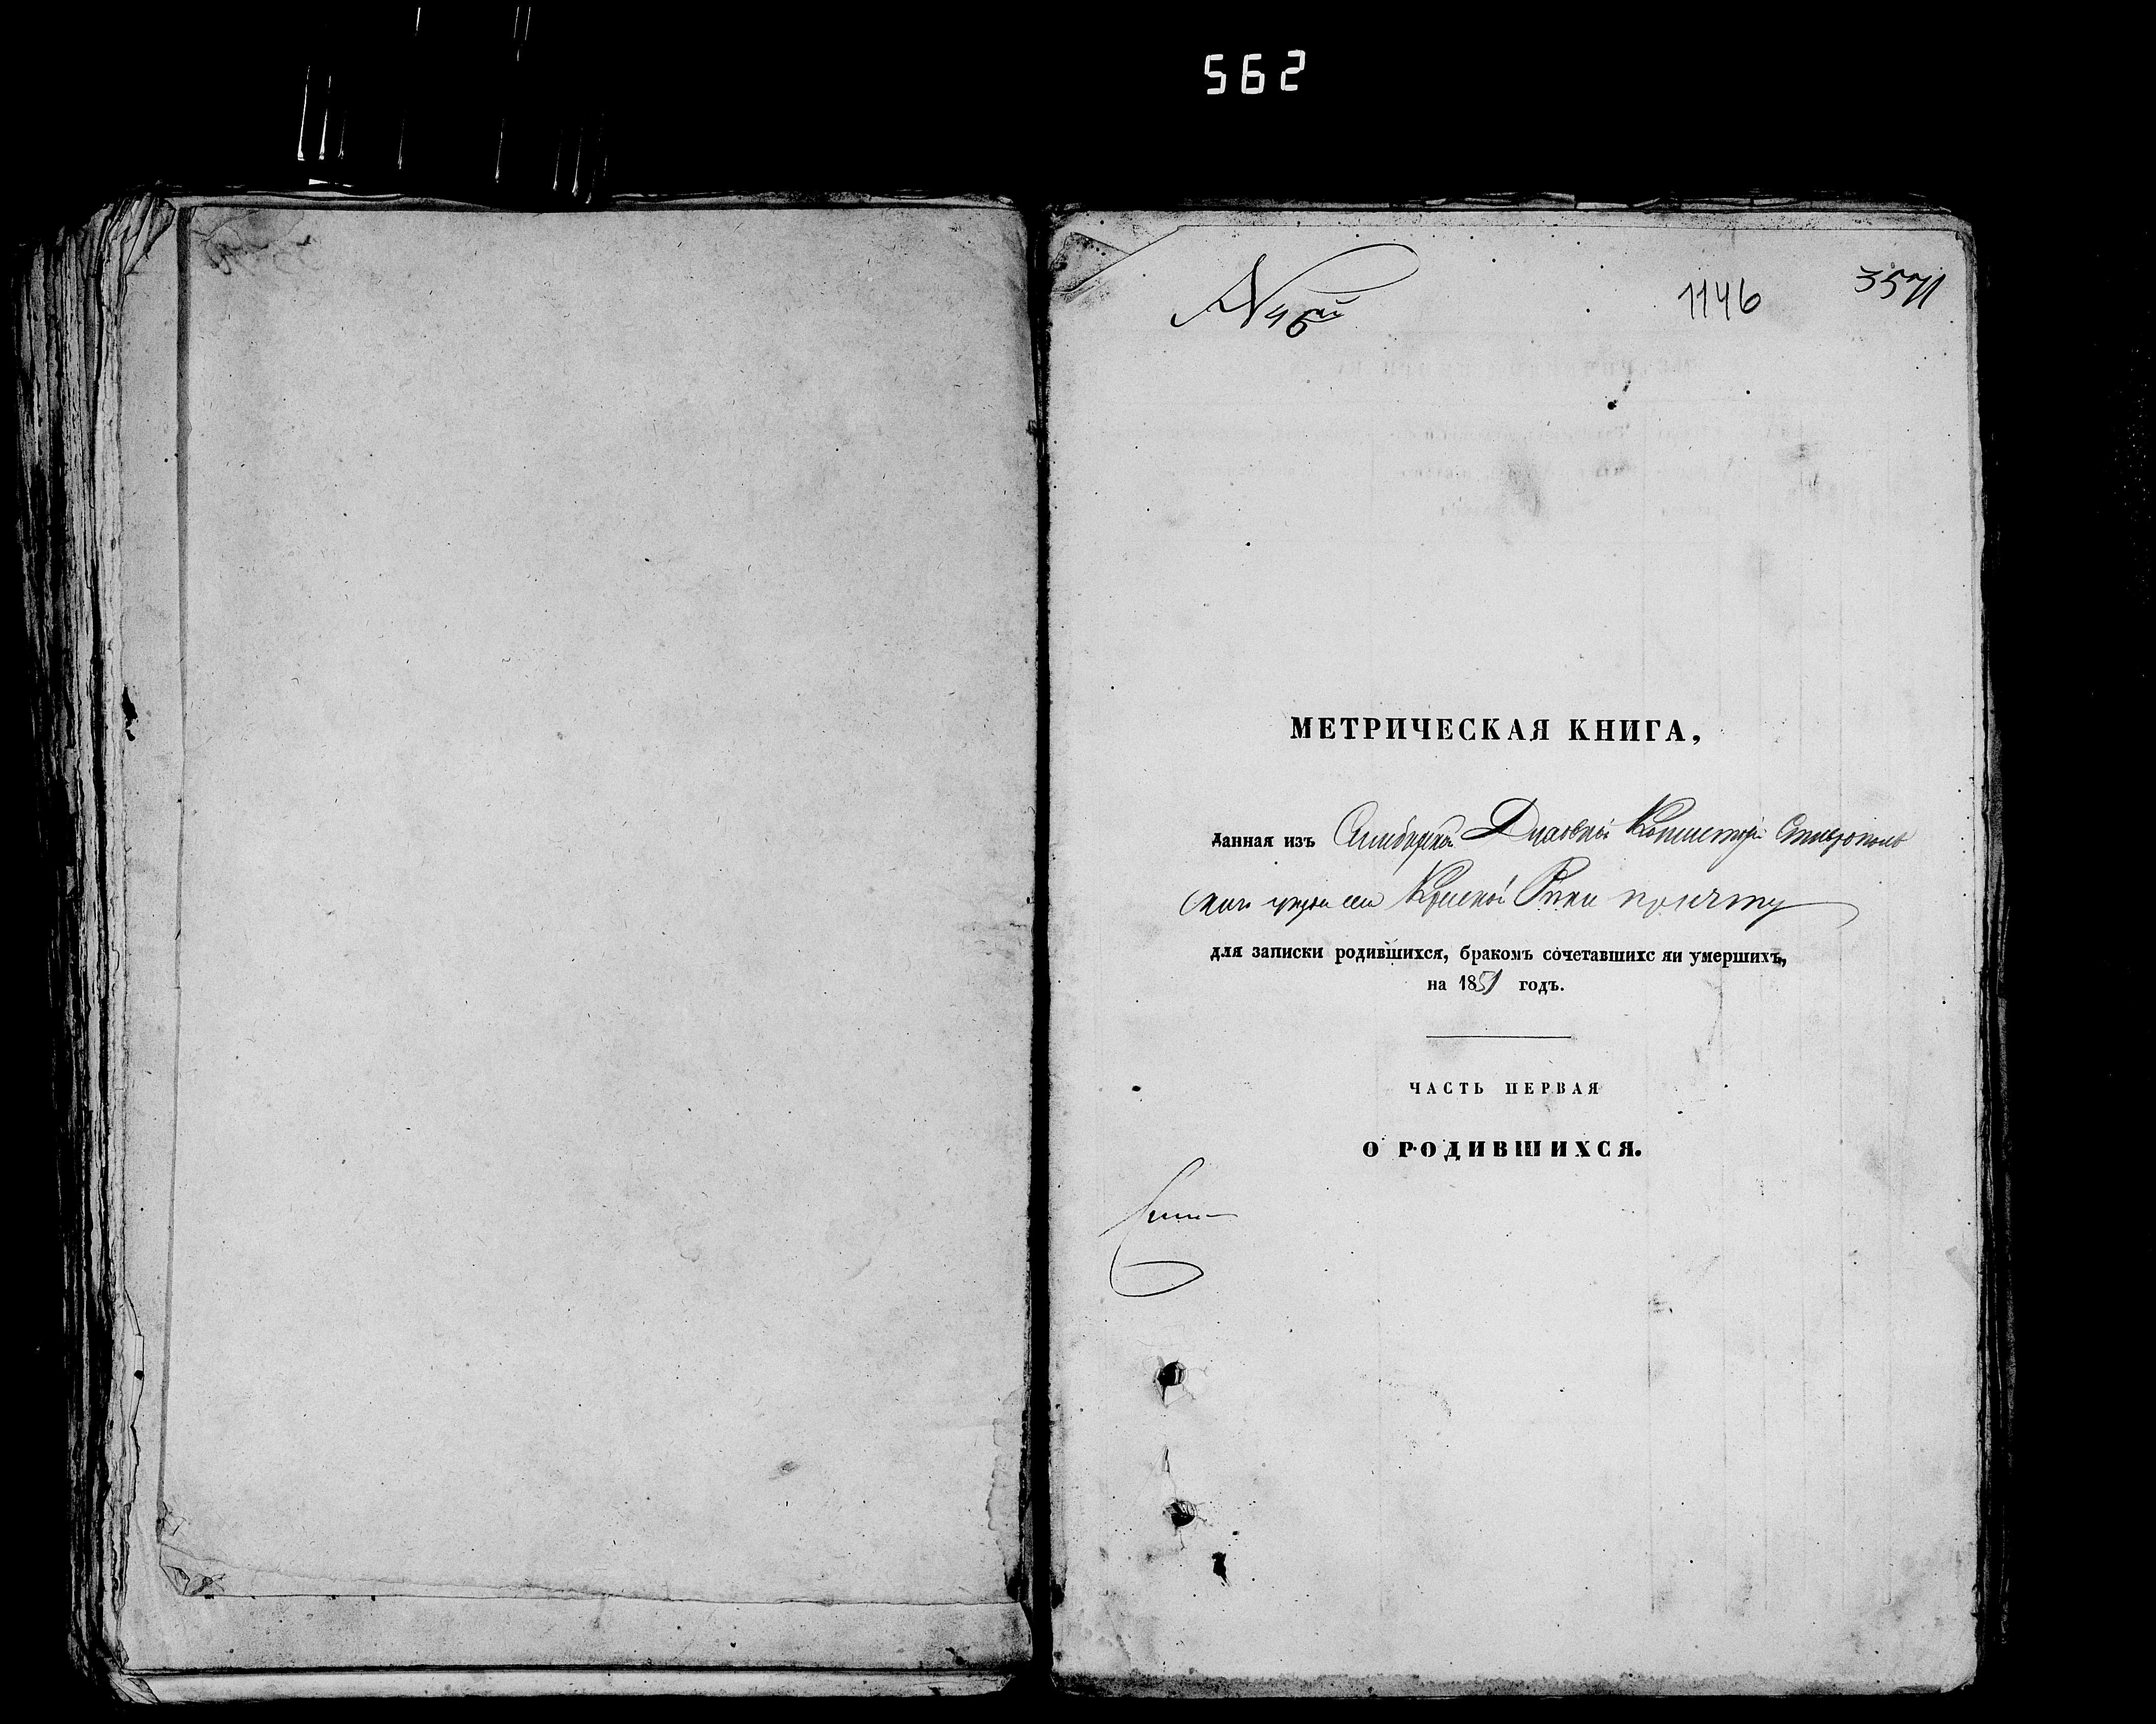 562
№ 46ый
1146
3571
МЕТРИЧЕСКАЯ КНИГА,
данная изъ Симбирской Духовной Консисторіи Ставрополь
скаго уѣзда села Красной Рѣки причту
для записки родившихся, бракомъ сочетавшихс яи умершихъ,
на 1851 годъ.
ЧАСТЬ ПЕРВАЯ
О РОДИВШИХСЯ.